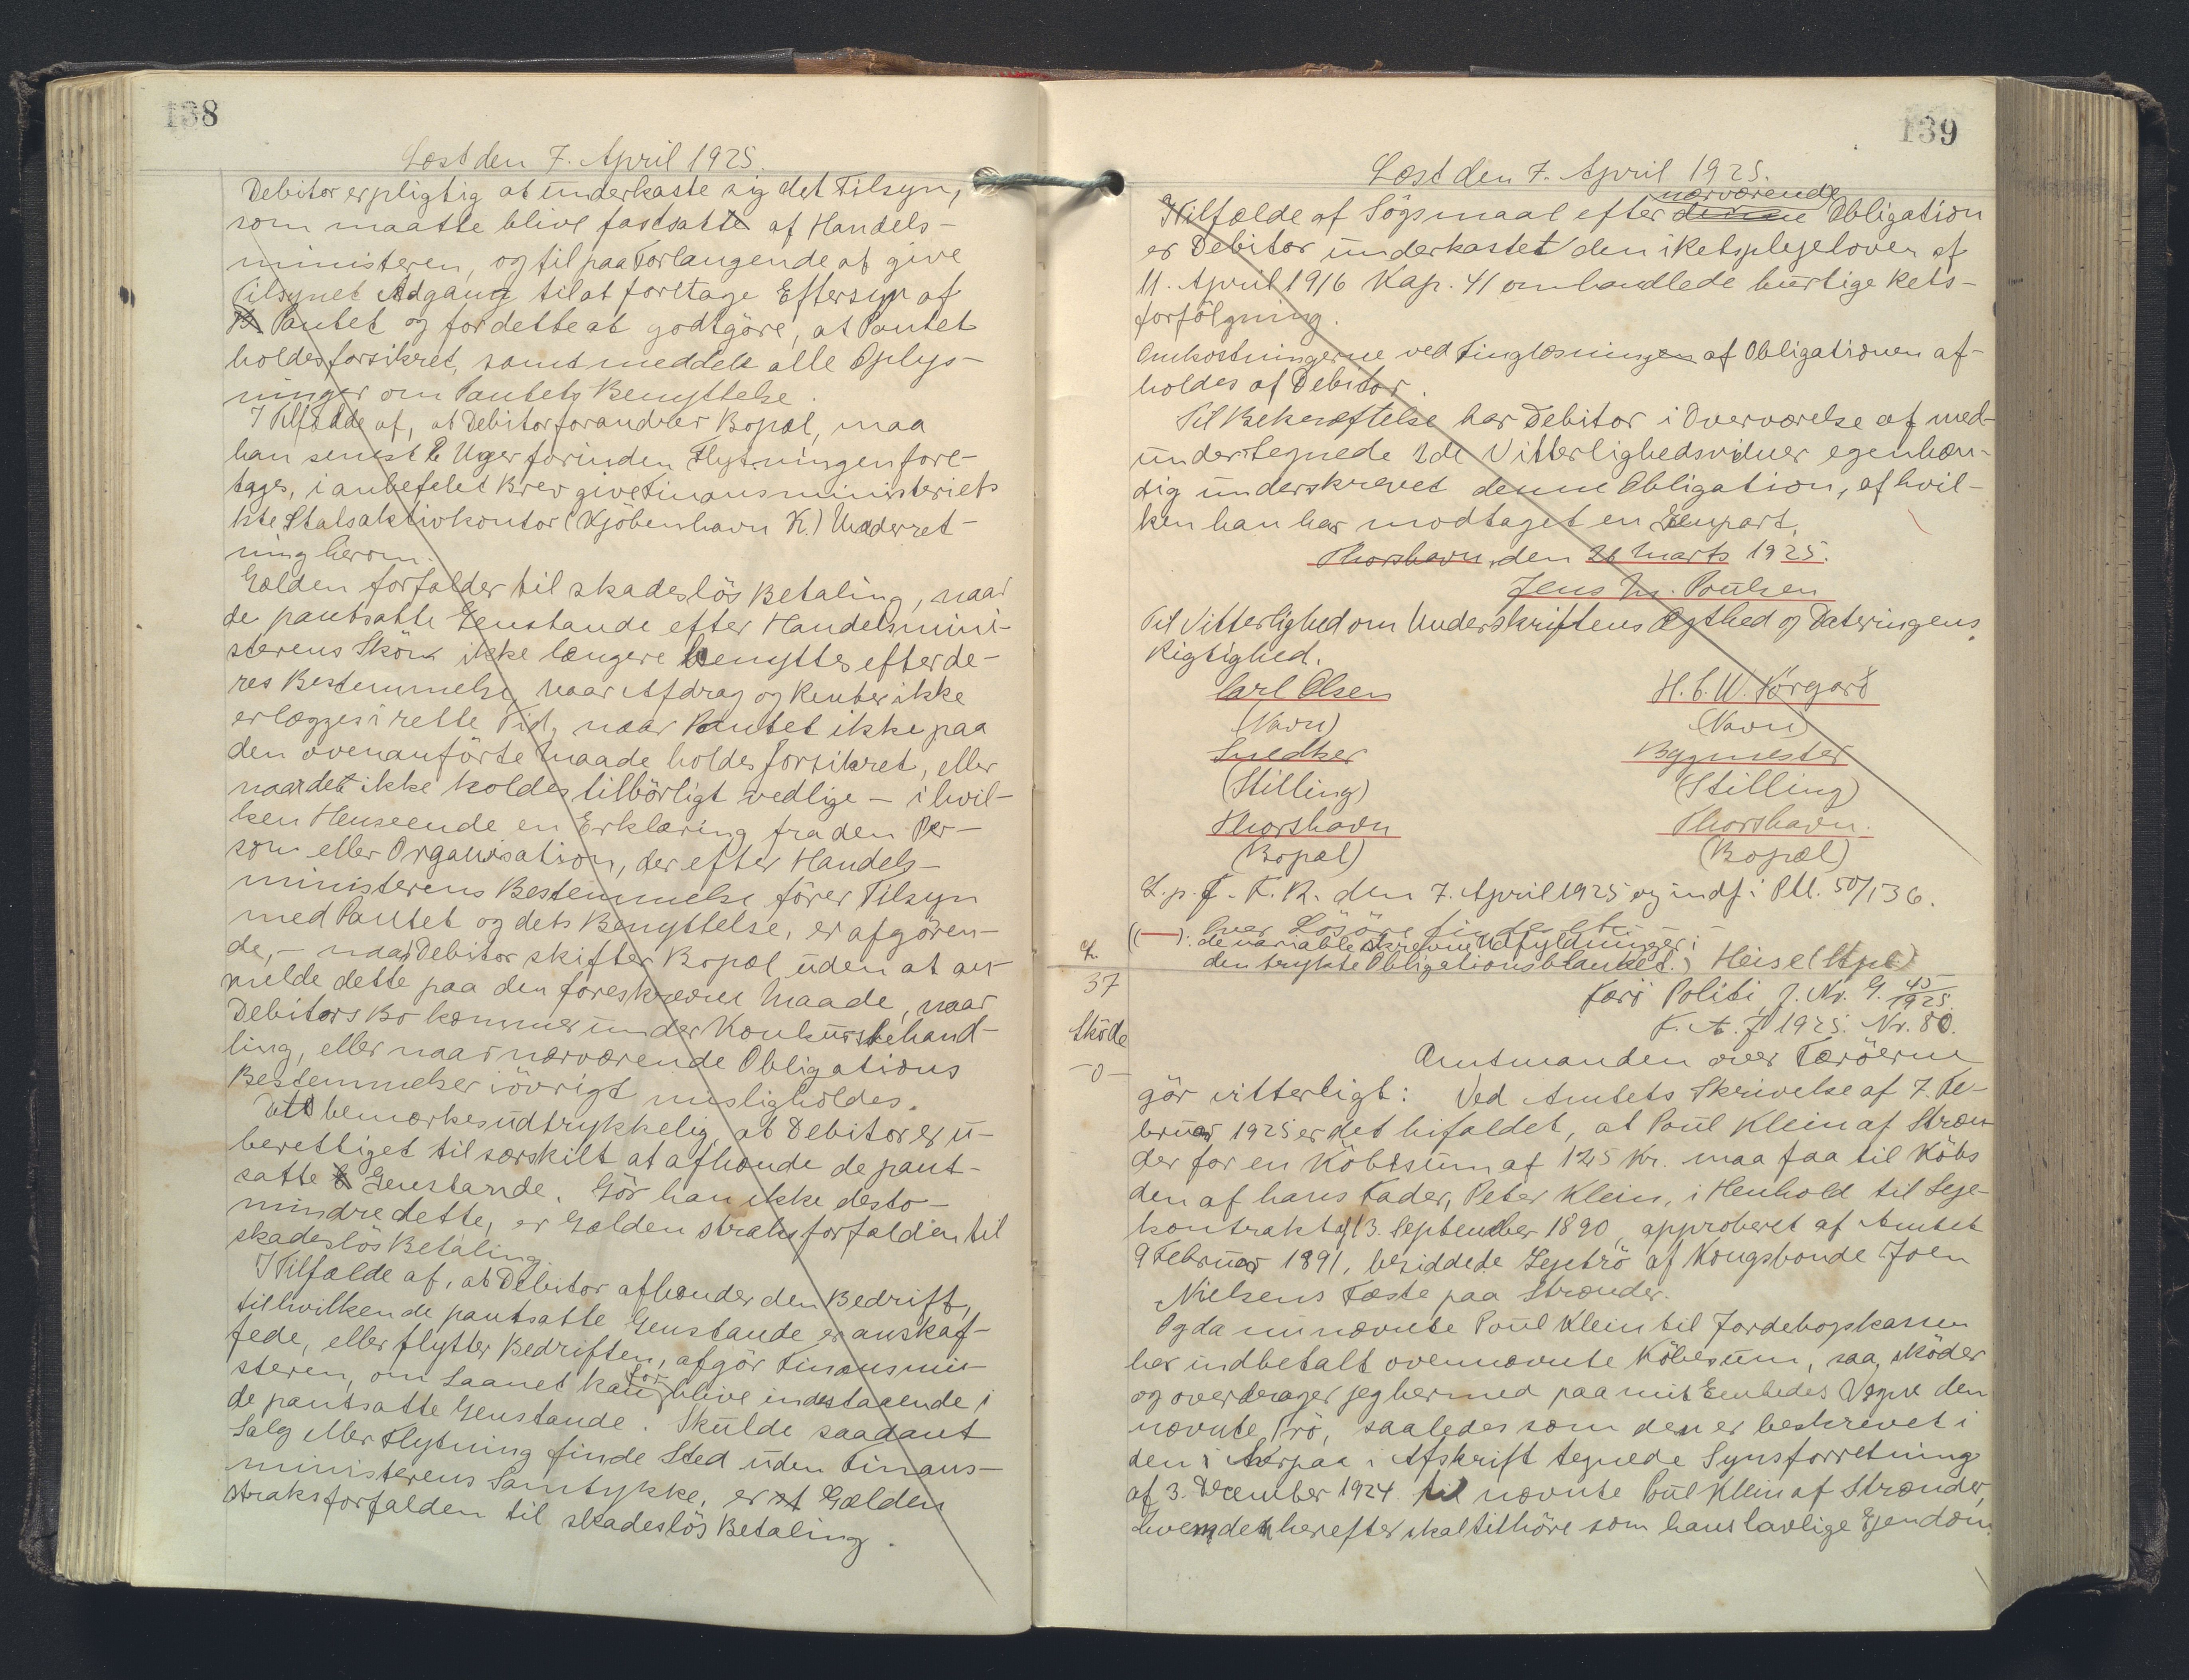 138
Læst den 7. April 1925.
Debitor er pligtig at underkaste sig det Tilsyn,
som maatte blive fastsatte af Handels-
ministeren, og til paa Forlangende at give
Tilsynet Adgang til at foretage Eftersyn af
Pantet og for dette at godtgöre, at Pantet
holdes forsikret, samt meddele alle Oplys-
ninger om Pantets Benyttelse.
I Tilfælde af, at Debitor forandrer Bopæl, maa
han senest 2 Uger forinden Flytningen fore-
tages, i anbefalet Brev give Finansministeriets
1ste Statsaktivkontor (Kjöbenhavn K.) Underret-
ning herom.
Gælden forfalder til skadeslös Betaling, naar
de pantsatte Genstande efter Handelsmini-
sterens Skön ikke længere benyttes efter de-
res Bestemmelse, naar Afdrag og Renter ikke
erlægges i rette Tid, naar Pantet ikke paa
den ovenanförte Maade holdes forsikret, eller
naar det ikke holdes tilbörligt vedlige - i hvil-
ken Henseende en Erklæring fra den Per-
son eller Organisation, der efter Handels-
ministerens Bestemmelse förer Tilsyn
med Pantet og dets Benyttelse, er afgören-
de, - naar Debitor skifter Bopæl uden at an-
melde dette paa den foreskrevne Maade, naar
Debitors Bo kommer under Konkursbehand-
ling, eller naar nærværende Obligations
Bestemmelser iövrigt misligholdes.
Det bemærkes udtrykkelig, at Debitor er u-
berettiget til særskilt at afhænde de pant-
satte Genstande. Gör han ikke desto-
mindre dette, er Gælden straks forfalden til
skadeslös Betaling.
I Tilfælde af, at Debitor afhænder den Bedrift,
til hvilken de pantsatte Genstande er anskaf-
fede, eller flytter Bedriften, afgör Finansmini-
steren, om Laanet kan for blive indestaaende i
de pantsatte Genstande. Skulde saadant
Salg eller Flytning finde Sted uden Finans-
ministerens Samtykke, er at Gælden
straks forfalden til skadeslös Betaling.
139
Læst den 7. April 1925.
nærværende
I Tilfælde af Sögsmaal efter denne Obligation
er Debitor underkastet den i Retsplejeloven af
11. April 1916 Kap. 41 omhandlede hurtige Rets-
forfölgning.
Omkostningerne ved Tinglæsningen af Obligationen af-
holdes af Debitor.
Til Bekræftelse har Debitor i Overværelse af med-
undertegnede 2de Vitterlighedsvidner egenhæn-
dig underskrevet denne Obligation, af hvil-
ken han har modtaget en Genpart.
Thorshavn, den 26 Marts 1925.
Jens M. Poulsen
Til Vitterlighed om Underskriftens Ægthed og Dateringens
Rigtighed.
Carl Olsen H. C. W. Nörgard
(Navn) (Navn)
Snedker Bygmester
(Stilling) (Stilling)
Thorshavn Thorshavn.
(Bopæl) (Bopæl)
L. p. F. T. R. den 7. April 1925 og indf. i Ptl. 50/136.
over Lösöre
((—): de variable skrevne Udfyldninger i
den trykte Obligationsblanket.) Heise (Stpl)
L.
37
Sköde
-0-
Færö Politi J. Nr. G. 45/1925.
F. A. J 1925. Nr. 80.
Amtmanden over Færöerne
gör vitterligt: Ved Amtets Skrivelse af 7. Fe-
bruar 1925 er det bifaldet, at Poul Klein af Stræn-
der for en Köbesum af 125 Kr. maa faa til Köbs
den af hans Fader, Peter Klein, i Henhold til Leje-
kontrakt af 13. September 1890, approberet af Amtet
9 Februar 1891, besiddede Lejetrö af Kongsbonde Joen
Nielsens Fæste paa Strænder.
Og da nu nævnte Poul Klein til Jordebogskassen
har indbetalt ovennævnte Köbesum, saa sköder
og overdrager jeg hermed paa mit Embedes Vegne den
nævnte Trö, saaledes som den er beskrevet i
den i herpaa i Afskrift tegnede Synsforretning
af 3. December 1924 til nævnte Poul Klein af Strænder,
hvem den herefter skal tilhöre som hans lovlige Ejendom